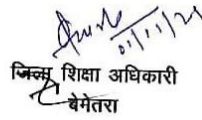 01/11/21
जिला शिक्षा अधिकारी
बेमेतरा